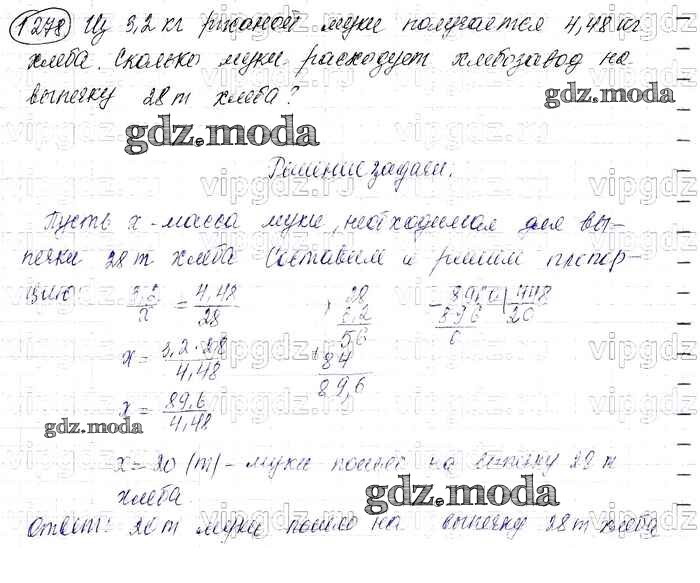 1278 Из 3,2 кг ржаной муки получается 4,48 кг
хлеба. Сколько муки расходует хлебозавод на
выпечку 28 т хлеба?
gdz.moda
gdz.moda
Решение задачи.
Пусть x - масса муки, необходимая для вы-
печки 28 т хлеба. Составим и решим пропор-
цию 3,2/x = 4,48/28
x = 3,2 · 28/4,48
x = 89,6/4,48
28
3,2
56
+ 84
89,6
8960 448
896 20
0
gdz.moda
x = 20 (т) - муки пошло на выпечку 28 т
хлеба.
gdz.moda
Ответ: 20 т муки пошло на выпечку 28 т хлеба
vipgdz.ru